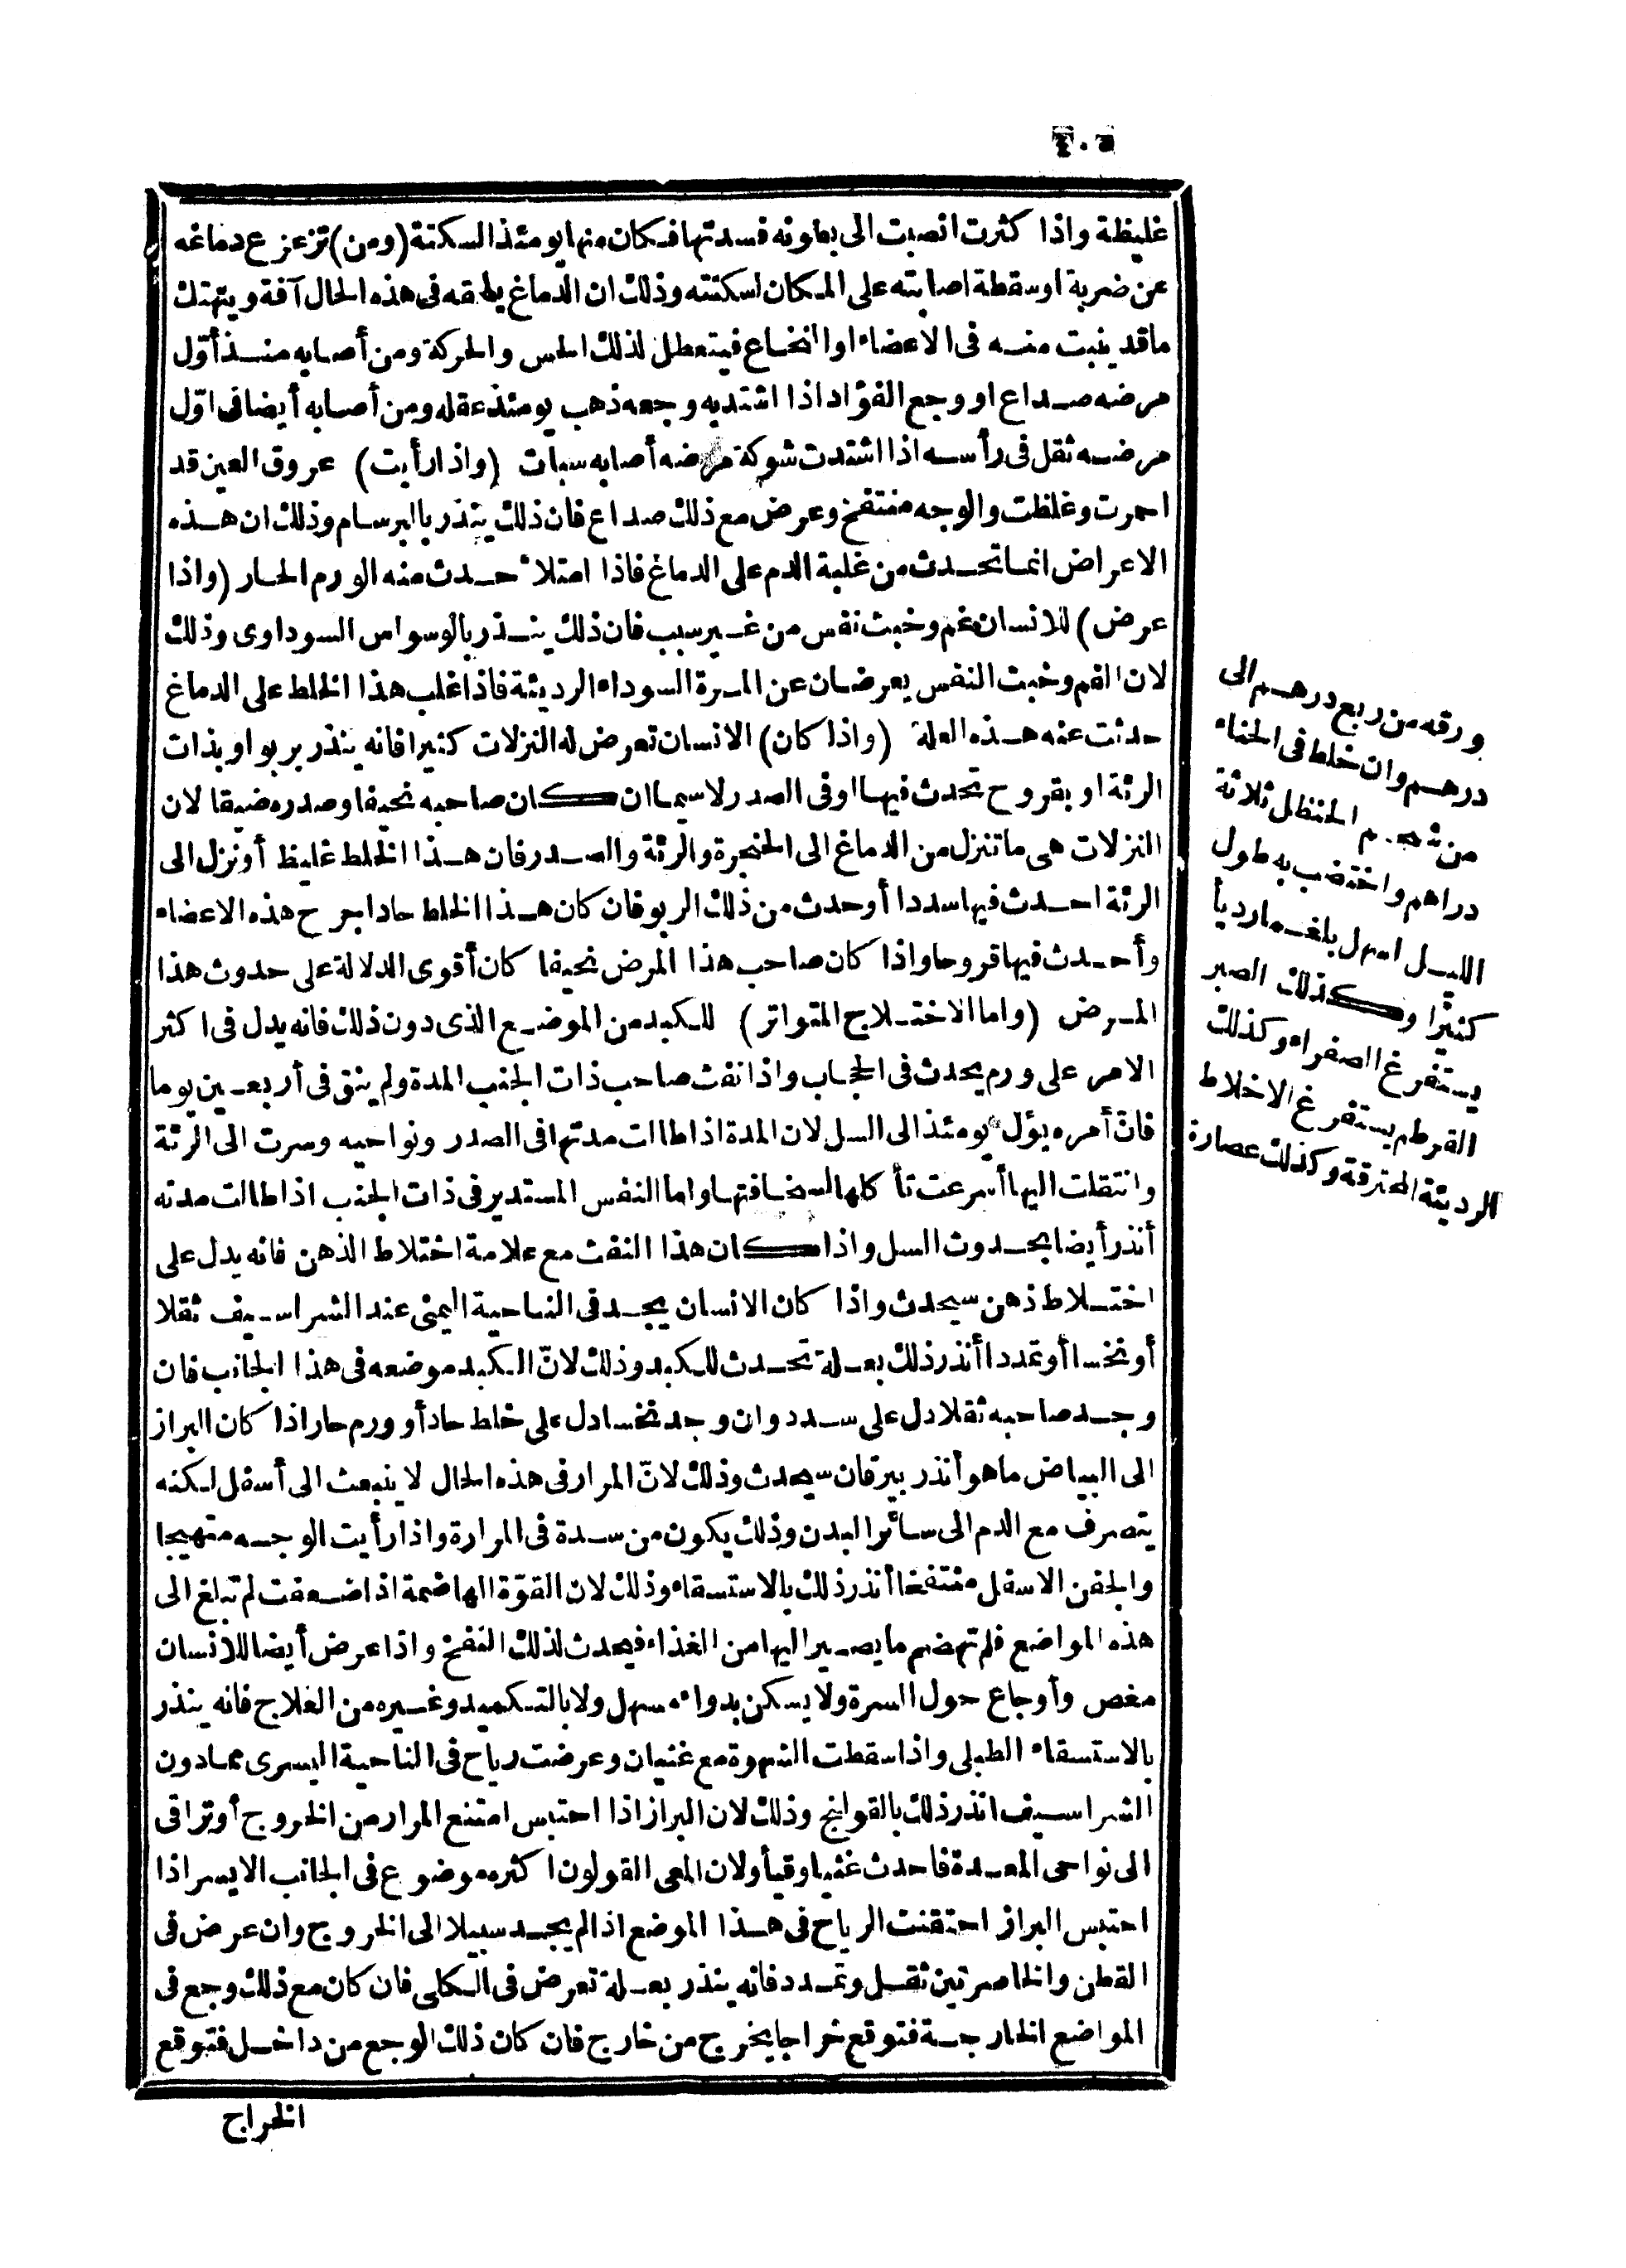 غليظة واذا كثرت انصبت الى بطونه فسدتها فكان منها يومئذ السكتة (ومن) تزعزع دماغه
عن ضربة اوسقطة اصابته على المكان اسكتته وذلك ان الدماغ يلحقه فى هذه الحال آفة ويتهتك
ماقد ينبت منه فى الاعضاء اوالنخاع فيتعطل لذلك الحس والحركة ومن أصابه منذ أوّل
مرضه صداع او وجع الفؤاد اذا اشتد به وجعه ذهب يومئذ عقله ومن أصابه أيضا فى اوّل
مرضه ثقل فى رأسه اذا اشتدت شوكة مرضه أصابه سبات (واذا رأيت) عروق العين قد
احمرت وغلظت والوجه منتفخ وعرض مع ذلك صداع فان ذلك ينذر بالبرسام وذلك ان هذه
الاعراض انما تحدث من غلبة الدم على الدماغ فاذا امتلأ حدث منه الورم الحار (واذا
عرض) للانسان غم وخبث نفس من غير سبب فان ذلك ينذر بالوسواس السوداوى وذلك
لان الغم وخبث النفس يعرضان عن المرة السوداء الرديئة فاذا غلب هذا الخلط على الدماغ
حدثت عنه هذه العلة (واذا كان) الانسان تعرض له النزلات كثيرا فانه ينذر بربو او بذات
الرئة او بقروح تحدث فيها اوفى الصدر لاسيما ان كان صاحبه نحيفا وصدره ضيقا لان
النزلات هى ما تنزل من الدماغ الى الحنجرة والرئة والصدر فان هذا الخلط غليظ أو نزل الى
الرئة احدث فيها سددا أوحدث من ذلك الربو فان كان هذا الخلط حادا جرح هذه الاعضاء
وأحدث فيها قروحا واذا كان صاحب هذا المرض نحيفا كان أقوى الدلالة على حدوث هذا
المرض (واما الاختلاج المتواتر) للكبد من الموضع الذى دون ذلك فانه يدل فى اكثر
الامر على ورم يحدث فى الحجاب واذا نفث صاحب ذات الجنب المدة ولم ينق فى أربعين يوما
فانّ أمره يؤل يومئذ الى السل لان المدة اذا طالت مدتها فى الصدر ونواحيه وسرت الى الرئة
وانتقلت اليها أسرعت تأكلها لسخافتها واما النفس المستدير فى ذات الجنب اذا طالت مدته
أنذر أيضا بحدوث السل واذا كان هذا النفث مع علامة اختلاط الذهن فانه يدل على
اختلاط ذهن سيحدث واذا كان الانسان يجد فى الناحية اليمنى عند الشراسيف ثقلا
أونخسا أوتمددا أنذر ذلك بعلة تحدث للكبد وذلك لانّ الكبد موضعه فى هذا الجانب فان
وجد صاحبه ثقلا دل على سدد وان وجد نخسا دل على خلط حاد أو ورم حار اذا كان البراز
الى البياض ما هو أنذر بيرقان سيحدث وذلك لانّ المرار فى هذه الحال لا ينبعث الى أسفل لكنه
يتصرف مع الدم الى سائر البدن وذلك يكون من سدة فى المرارة واذا رأيت الوجه متهيجا
والجفن الاسفل منتفخا أنذر ذلك بالاستسقاء وذلك لان القوّة الهاضمة اذا ضعفت لم تبلغ الى
هذه المواضع فلم تهضم ما يصير اليها من الغذاء فيحدث لذلك النفخ واذا عرض أيضا للانسان
مغص وأوجاع حول السرة ولا يسكن بدواء مسهل ولا بالتكميد وغيره من العلاج فانه ينذر
بالاستسقاء الطبلى واذا سقطت الشهوة مع غثيان وعرضت رياح فى الناحية اليسرى مما دون
الشراسيف انذر ذلك بالقولنج وذلك لان البراز اذا احتبس امتنع المرار من الخروج أوتراقى
الى نواحى المعدة فاحدث غثيا وقيأ ولان المعى القولون اكثره موضوع فى الجانب الايسر اذا
احتبس البراز احتقنت الرياح فى هذا الموضع اذ لم يجد سبيلا الى الخروج وان عرض فى
القطن والخاصرتين ثقل وتمدد فانه ينذر بعلة تعرض فى الكلى فان كان مع ذلك وجع فى
المواضع الخارجة فتوقع خراجا يخرج من خارج فان كان ذلك الوجع من داخل فتوقع
الخراج
ورقه من ربع درهم الى
درهم وان خلط فى الحناء
من شحم الحنظل ثلاثة
دراهم واختضب به طول
الليل اسهل بلغما رديأ
كثيرا وكذلك الصبر
يستفرغ الصفراء وكذلك
القرطم يستفرغ الاخلاط
الرديئة المحترقة وكذلك عصارة